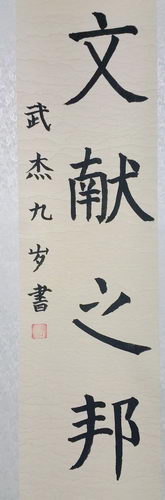 文献之邦
武杰九岁書